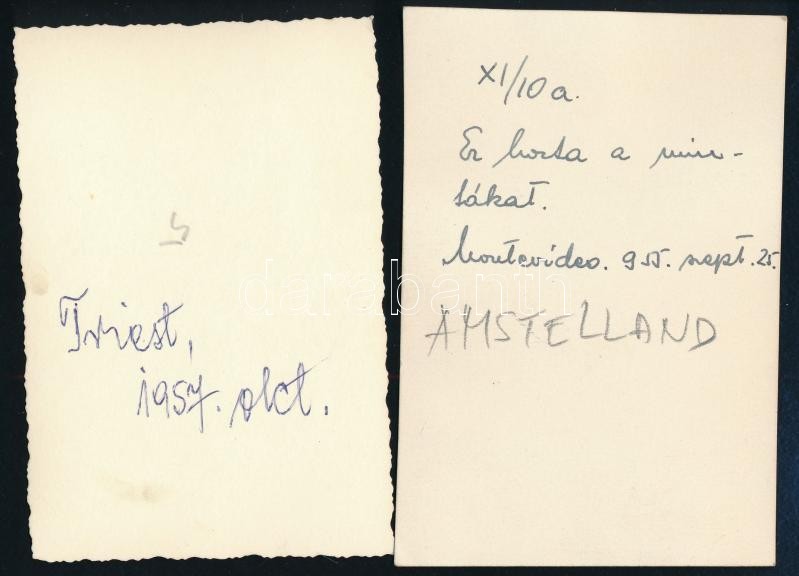 Triest,
1957. okt.
XI/10 a.
Ez hozta a min-
tákat.
Montevideo. 955. szept. 25.
AMSTELLAND
darabanth